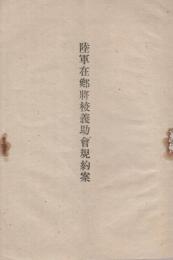 陸軍在郷將校義助會規約案